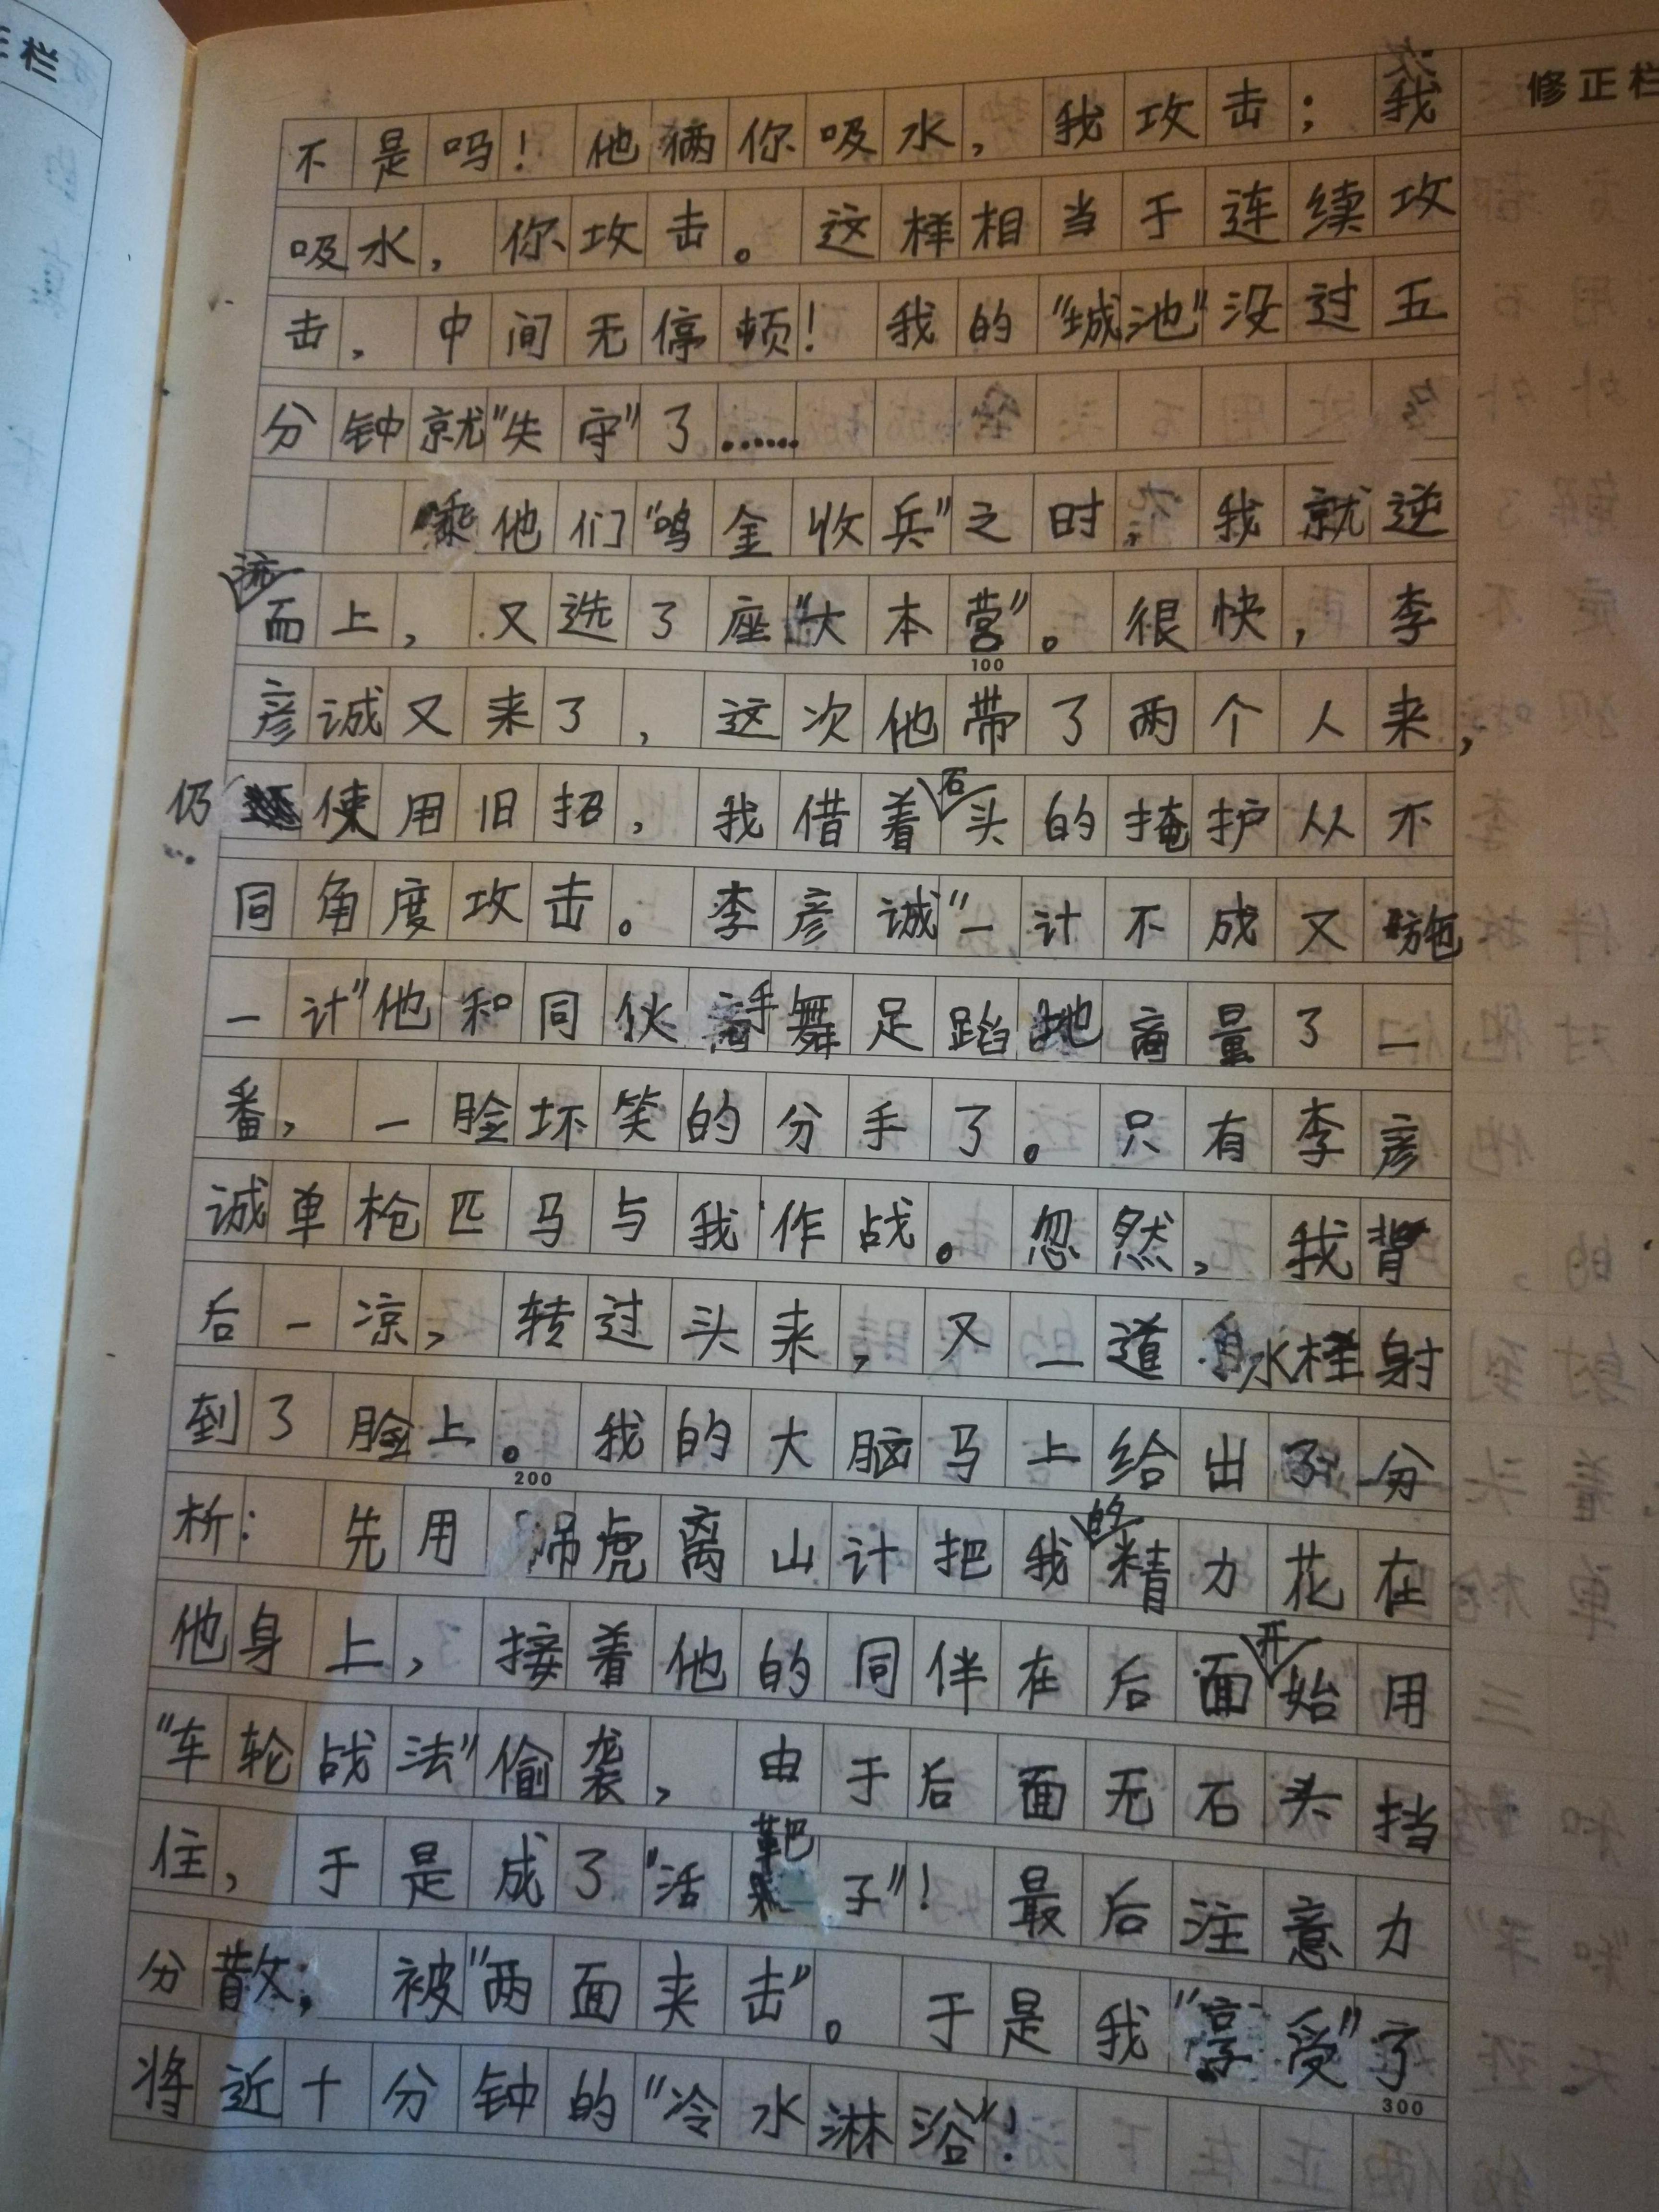 正栏
修正栏
不是吗！他俩你吸水，我攻击；我
吸水，你攻击。这样相当于连续攻
击，中间无停顿！我的“城池”没过五
分钟就“失守”了……
乘他们“鸣金收兵”之时，我就逆
流而上，又选了座“大本营”。很快，李
100
彦诚又来了，这次他带了两个人来，
仍使用旧招，我借着石头的掩护从不
同角度攻击。李彦诚“一计不成又施
一计”他和同伙手舞足蹈地商量了一
番，一脸坏笑的分手了。只有李彦
诚单枪匹马与我作战。忽然，我背
后一凉，转过头来，又一道水柱射
到了脸上。我的大脑马上给出了分
200
析：先用虎离山计把我的精力花在
他身上，接着他的同伴在后面开始用
“车轮战法”偷袭，由于后面无石头挡
住，于是成了“活靶子”！最后注意力
分散，被“两面夹击”。于是我“享受”了
300
将近十分钟的“冷水淋浴”！